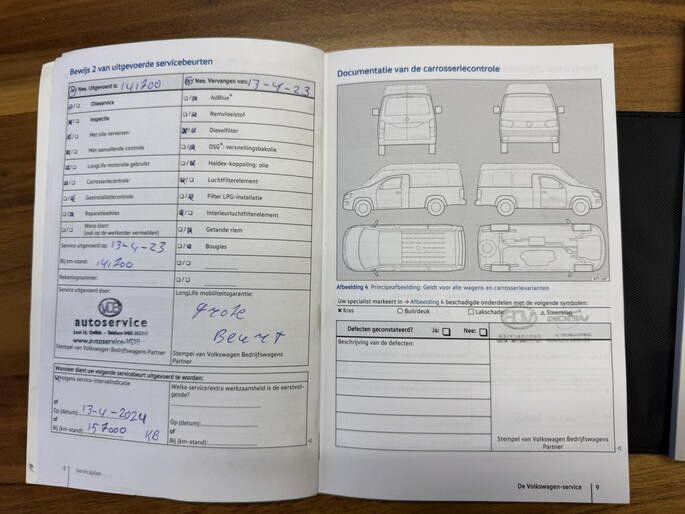 Bewijs 2 van uitgevoerde servicebeurten
Nee. Uitgevoerd is: 141700
Nee. Vervangen van: 13-4-23
Olieservice
AdBlue
Inspectie
Remvloeistof
Met olie verversen
Dieselfilter
Met aanvullende controle
DSG: versnellingsbakolie
LongLife motorolie gebruikt
Haldex-koppeling: olie
Carrosseriecontrole
Luchtfilterelement
Gasinstallatiecontrole
Filter LPG-installatie
Reparatieadvies
Interieurluchtfilterelement
Wens klant
(ook op de werkorder vermelden)
Getande riem
Service uitgevoerd op: 13-4-23
Bougies
Bij km-stand: 141700
Rekeningnummer:
Service uitgevoerd door:
LongLife mobiliteitsgarantie:
VDB
autoservice
www.autoservice-VDB
Grote
Beurt
Stempel van Volkswagen Bedrijfswagens
Partner
Stempel van Volkswagen Bedrijfswagens
Partner
Wanneer dient uw volgende servicebeurt uitgevoerd te worden:
Volgens service-intervalindicatie
Welke service/extra werkzaamheid is de eerstvol-
gende?
of
Op (datum): 13-4-2024
of
Bij (km-stand): 157000 KB
Op (datum):
of
Bij (km-stand):
8 Serviceplan
Documentatie van de carrosseriecontrole
Afbeelding 4 Principeafbeelding: Geldt voor alle wagens en carrosserievarianten
Uw specialist markeert in → Afbeelding 4 beschadigde onderdelen met de volgende symbolen:
× Kras ○ Buil/deuk □ Lakschade △ Steenslag
Defecten geconstateerd? Ja: Nee:
Beschrijving van de defecten:
Stempel van Volkswagen Bedrijfswagens
Partner
De Volkswagen-service 9